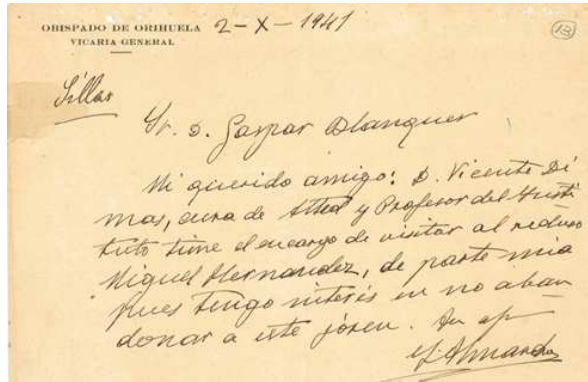 OBISPADO DE ORIHUELA
VICARIA GENERAL
2-X-1941
13
Sr. D. Gaspar Blanquer
Mi querido amigo: D. Vicente Di
mas, cura de y Profesor del Insti
tuto tiene el encargo de visitar al recluso
Miguel Hernandez, de parte mia
pues tengo interés en no aban
donar a este jóven. Su af
L Almarcha